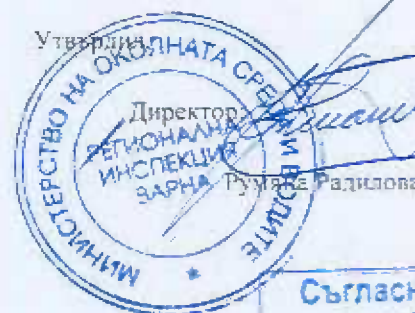 Утвърдил
Директор:
Румяна Радилова
МИНИСТЕРСТВО НА ОКОЛНАТА СРЕДА И ВОДИТЕ *
РЕГИОНАЛНА
ИНСПЕКЦИЯ
ВАРНА
Съгласн